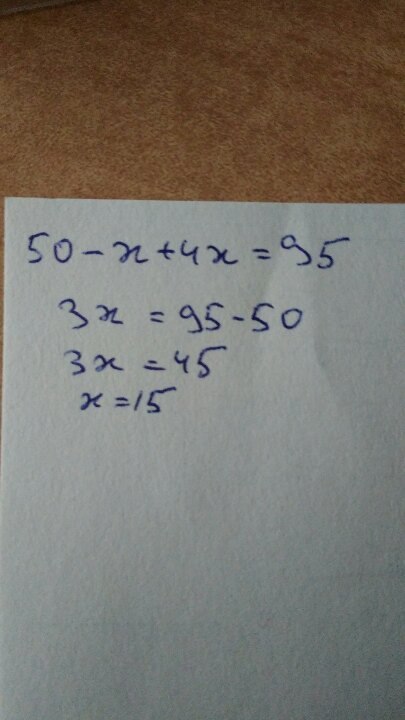 50-x+4x=95
3x=95-50
3x=45
x=15